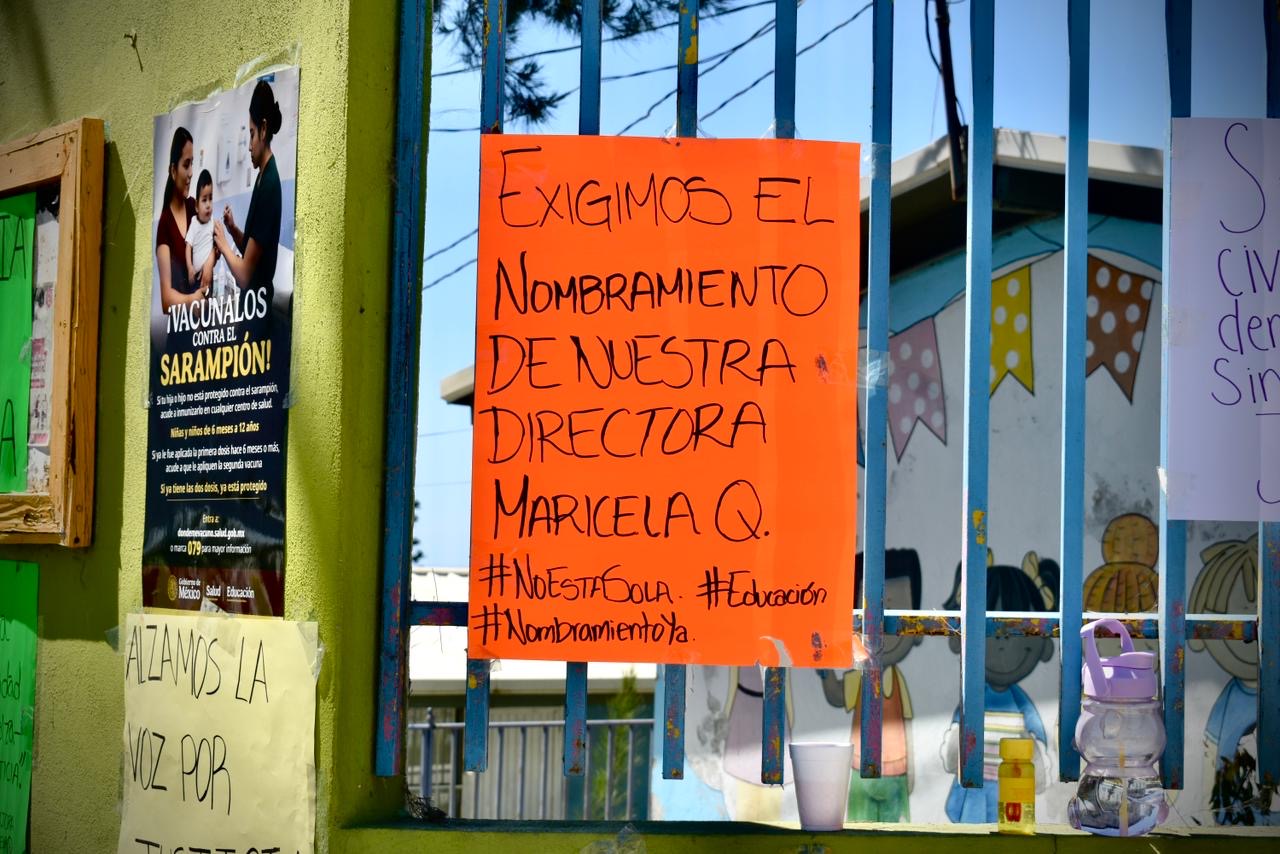 EXIGIMOS EL
NOMBRAMIENTO
DE NUESTRA
DIRECTORA
MARICELA Q.
#NOESTASOLA. #Educación
#NombramientoYa.
¡VACÚNALOS
CONTRA EL
SARAMPIÓN!
Si tu hija o hijo no está protegido contra el sarampión,
acude a inmunizarlo en cualquier centro de salud.
Niñas y niños de 6 meses a 12 años
Si ya le fue aplicada la primera dosis hace 6 meses o más,
acude a que le apliquen la segunda vacuna
Si ya tiene las dos dosis, ya está protegido
Entra a:
dondemevacuno.salud.gob.mx
o marca 079 para mayor información
Gobierno de
México
Salud
Educación
ALZAMOS LA
VOZ POR
S
civ
der
Sin